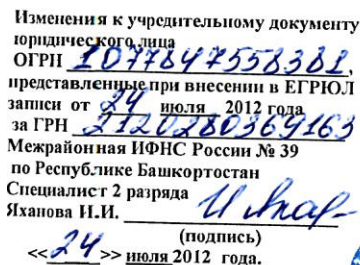 Изменения к учредительному документу
юридического лица
ОГРН 1077847558381,
представленные при внесении в ЕГРЮЛ
записи от 24 июля 2012 года
за ГРН 2120280369163
Межрайонная ИФНС России № 39
по Республике Башкортостан
Специалист 2 разряда
Яханова И.И.
(подпись)
<<24>> июля 2012 года.